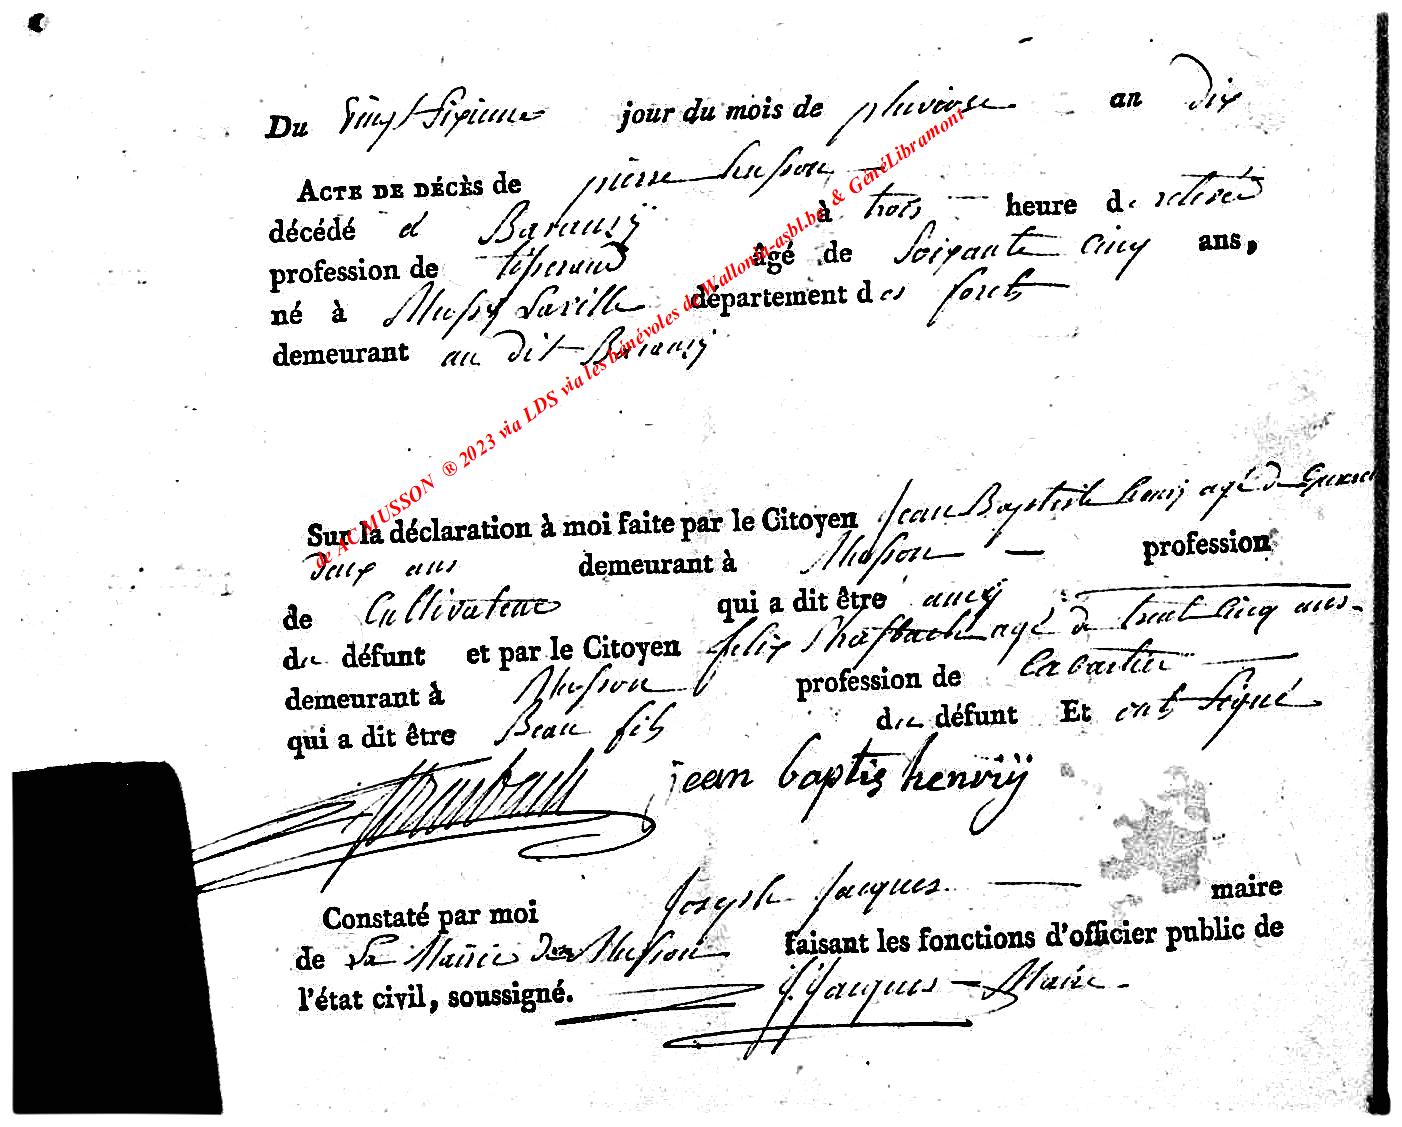 Du Vingt Sixieme jour du mois de pluviose an dix
ACTE DE DÉCÈS de pierre husson
décédé a Baranzÿ à trois heure de relevée
profession de tisserand âgé de Soixante cinq ans,
né à Mussy Laville département des forets
demeurant au dit Baranzy
de AC MUSSON ® 2023 via LDS via les bénévoles de Wallonia-asbl.be & GénéLibramont
Sur la déclaration à moi faite par le Citoyen Jean Baptiste henrÿ agé de
deux ans demeurant à Musson profession
de Cultivateur qui a dit être amÿ
du défunt et par le Citoyen felix agé de trent Cinq ans
demeurant à Musson profession de Cabartier
qui a dit être Beau fils du défunt Et ont Signé
jean baptis henrÿ
Constaté par moi Joseph Jacques maire
de La Mairie de Musson faisant les fonctions d'officier public de
l'état civil, soussigné. J. Jacques Maire